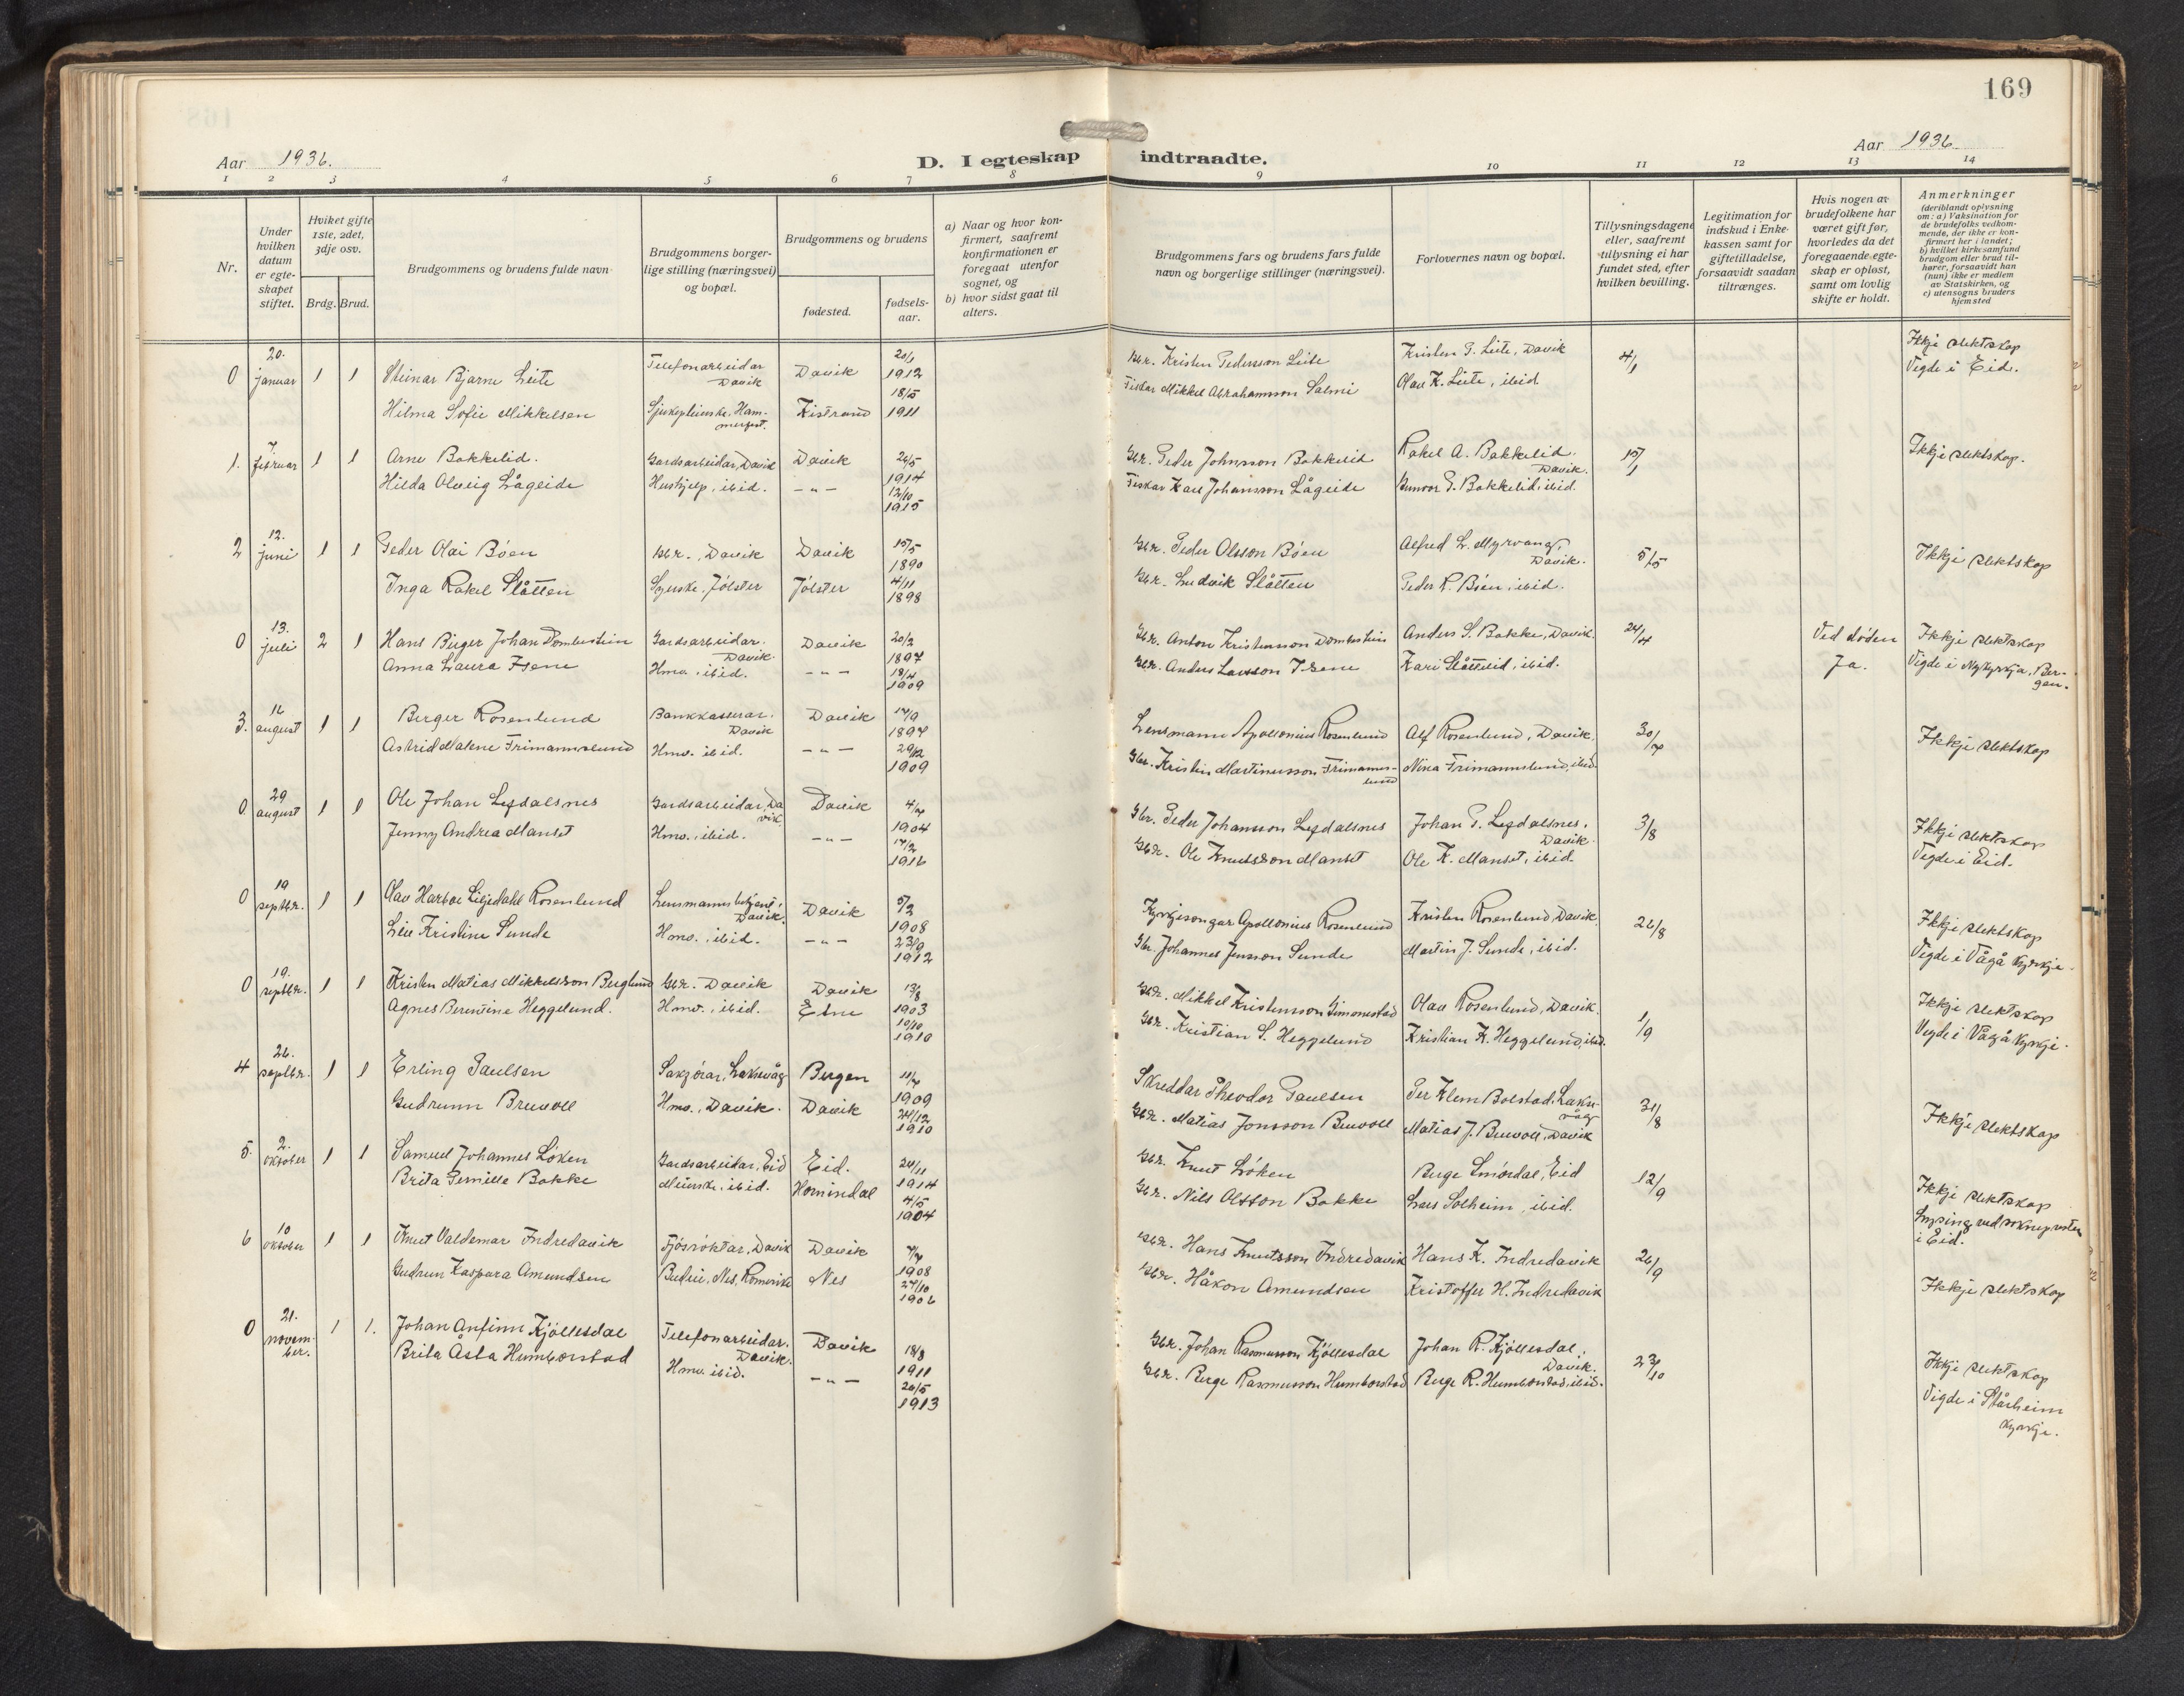 169
Aar 1936.
D. I egteskap indtraadte.
Aar 1936
1 2 3 4 5 6 7 8 9 10 11 12 13 14
Nr.
Under hvilken datum er egteskapet stiftet.
Hviket gifte 1ste, 2det, 3dje osv.
Brdg. Brud.
Brudgommens og brudens fulde navn
Brudgommens borgerlige stilling (næringsvei) og bopæl.
Brudgommens og brudens
fødested.
fødselsaar.
a) Naar og hvor konfirmert, saafremt konfirmationen er foregaat utenfor sognet, og
b) hvor sidst gaat til alters.
Brudgommens fars og brudens fars fulde navn og borgerlige stillinger (næringsvei).
Forlovernes navn og bopæl.
Tillysningsdagene eller, saafremt tillysning ei har fundet sted, efter hvilken bevilling.
Legitimation for indskud i Enkekassen samt for giftetilladelse, forsaavidt saadan tiltrænges.
Hvis nogen av brudefolkene har været gift før, hvorledes da det foregaaende egteskap er opløst, samt om lovlig skifte er holdt.
Anmerkninger
(deriblandt oplysning om: a) Vaksination for de brudefolks vedkommende, der ikke er konfirmert her i landet;
b) hvilket kirkesamfund brudgom eller brud tilhører, forsaavidt han (hun) ikke er medlem av Statskirken, og
c) utensogns bruders hjemsted
0 20. januar 1 1 Steinar Bjarne Leite Telefonarbeidar Davik Davik 20/1 1912 Gbr. Kristen Pedersson Leite Kristen P. Leite, Davik 4/1 Ikkje slektskap
Hilma Sofie Mikkelsen Sjukepleierske, Hammerfest. Kistrand 18/5 1911 Fiskar Mikkel Abrahamson Salmi Olav K. Leite, ibid. Vigde i Eid.
1. 7 februar 1 1 Arne Bakkelid. Gardsarbeidar, Davik Davik 26/5 1914 Gbr. Peder Johnsson Bakkelid Rakel A. Bakkelid. Davik. 15/1 Ikkje slektskap.
Hilda Olveig Lågeide Hushjelp, ibid. - " - 12/10 1915 Fiskar Karl Johansson Lågeide Gunvor P. Bakkelid, ibid.
2 12. juni 1 1 Peder Olai Böen Gbr., Davik Davik 15/5 1890 Gbr. Peder Olsson Böen Alfred L. Myrvang, Davik. 5/5 Ikkje slektskap
Inga Rakel Slåtten Syerske, Jölster Jölster 4/11 1898 Gbr. Ludvik Slåtten Peder R. Böen, ibid.
0 13. juli 2 1 Hans Birger Johan Dombestein Gardsarbeidar. Davik Davik 20/2 1897 Gbr. Anton Kristensson Dombestein Anders S. Bakke, Davik. 24/4 Ved döden Ikkje slektskap
Anna Laura Isene Hmv., ibid. - " - 18/4 1909 Gbr. Anders Larsson Isene Kari Slåtteid, ibid. Ja. Vigde i Nykyrkja, Bergen.
3. 16 august 1 1 Birger Rosenlund Bankkasserar. Davik Davik 14/9 1897 Lensmann Apollonius Rosenlund Alf Rosenlund, Davik. 30/7 Ikkje slektskap
Astrid Malene Frimannslund Hmv. ibid. - " - 29/12 1909 Gbr. Kristen Martinusson Frimannslund Nina Frimannslund, ibid.
0. 29 august 1 1 Ole Johan Legdalsnes Gardsarbeidar, Davik. Davik 4/7 1904 Gbr. Peder Johansson Legdalsnes Johan P. Legdalsnes, Davik. 3/8 Ikkje slektskap
Jenny Andrea Manset Hmv., ibid. - " - 17/2 1916 Gbr. Ole Knutsson Manset Ole K. Manset, ibid. Vigde i Eid.
0 19 septbr. 1 1 Olav Harboe Liljedahl Rosenlund Lensmannsbetjent, Davik. Davik 5/2 1908 Kyrkjesongar Apollonius Rosenlund Kristen Rosenlund, Davik 26/8 Ikkje slektskap
Liv Kristine Sunde Hmv., ibid. - " - 23/9 1912 Gbr. Johannes Jensson Sunde Martin J. Sunde, ibid. Vigde i Vågå kyrkje.
0 19. septbr. 1 1 Kristen Matias Mikkelsson Berglund Gbr. Davik Davik 13/8 1903 Gbr. Mikkel Kristensson Simonestad Olav Rosenlund, Davik. 1/9 Ikkje slektskap
Agnes Berentine Heggelund. Hmv., ibid. Etne 10/10 1910 Gbr. Kristian S. Heggelund Kristian K. Heggelund, ibid. Vigde i Vågå kyrkje.
4 26. septbr. 1 1 Erling Paulsen Laksevåg Bergen 11/7 1909 Skreddar Theodor Paulsen Per Klem Bolstad, Laksevåg 31/8 Ikkje slektskap
Gudrunn Bruvoll Hmv., Davik. Davik 24/12 1910 Gbr. Matias Jonsson Bruvoll Matias J. Bruvoll, Davik
5. 2. oktober 1 1 Samuel Johannes Löken Gardsarbeidar, Eid Eid. 24/11 1914 Gbr. Knut Löken Berge Smördal, Eid 12/9 Ikkje slektskap
Brita Pernille Bakke Meierske, ibid. Hornindal 4/5 1904 Gbr. Nils Olsson Bakke Lars Solheim, ibid. Lysing ved soknepresten i Eid.
6 10 oktober 1 1 Knut Valdemar Indredavik Fjösröktar, Davik Davik 7/7 1908 Gbr. Hans Knutsson Indredavik Hans K. Indredavik 26/9 Ikkje slektskap
Gudrun Kaspara Amundsen Budeie, Nes, Romerike Nes 27/10 1906 Gbr. Håkon Amundsen Kristoffer H. Indredavik
0 21. november. 1 1. Johan Anfinn Kjöllesdal Telefonarbeidar. Davik. Davik 18/8 1911 Gbr. Johan Rasmusson Kjöllesdal Johan R. Kjöllesdal, Davik. 23/10 Ikkje slektskap
Brita Åsta Humborstad Hmv. ibid. - " - 20/5 1913 Gbr. Berge Rasmusson Humborstad Berge R. Humborstad, ibid. Vigde i Stårheim kyrkje.